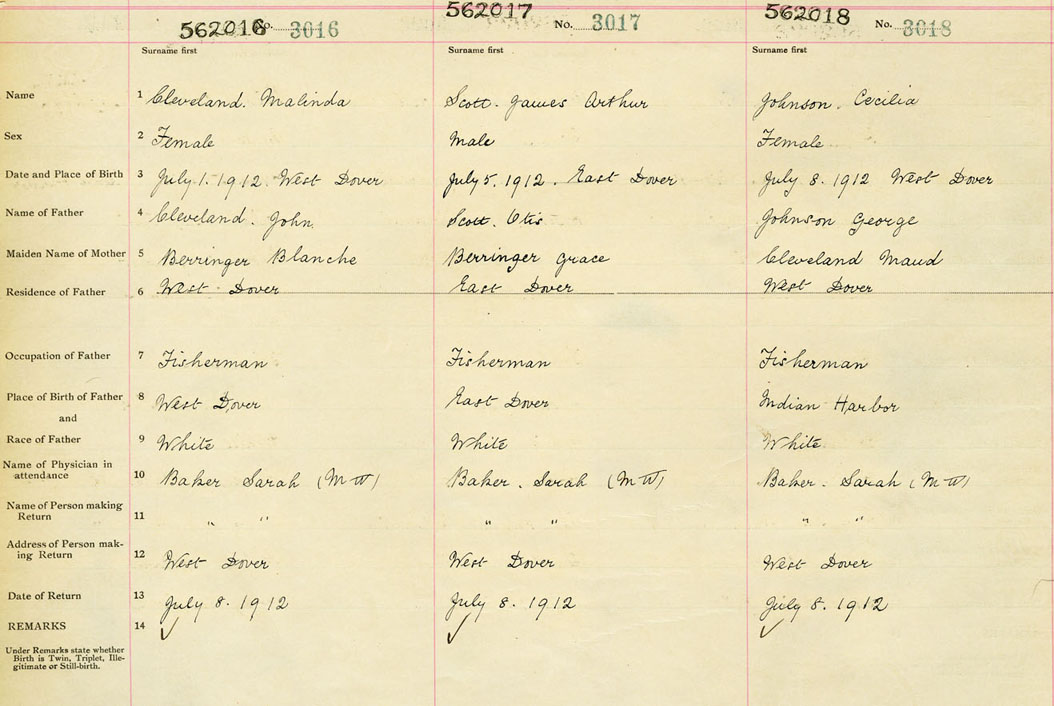 562016 No. 3016 562017 No. 3017 562018 No. 3018
Surname first Surname first Surname first
Name 1 Cleveland. Malinda Scott. James Arthur Johnson. Cecilia
Sex 2 Female Male Female
Date and Place of Birth 3 July 1. 1912. West Dover July 5. 1912. East Dover July 8. 1912 West Dover
Name of Father 4 Cleveland. John. Scott. Otis Johnson George
Maiden Name of Mother 5 Berringer Blanche Berringer Grace Cleveland Maud
Residence of Father 6 West Dover East Dover West Dover
Occupation of Father 7 Fisherman Fisherman Fisherman
Place of Birth of Father 8 West Dover East Dover Indian Harbor
and
Race of Father 9 White White White
Name of Physician in
attendance 10 Baker Sarah (M-W) Baker. Sarah (M-W) Baker. Sarah (M-W)
Name of Person making
Return 11 " " " " " "
Address of Person mak-
ing Return 12 West Dover West Dover West Dover
Date of Return 13 July 8. 1912 July 8. 1912 July 8. 1912
REMARKS 14 ✓ ✓ ✓
Under Remarks state whether
Birth is Twin, Triplet, Ille-
gitimate or Still-birth.